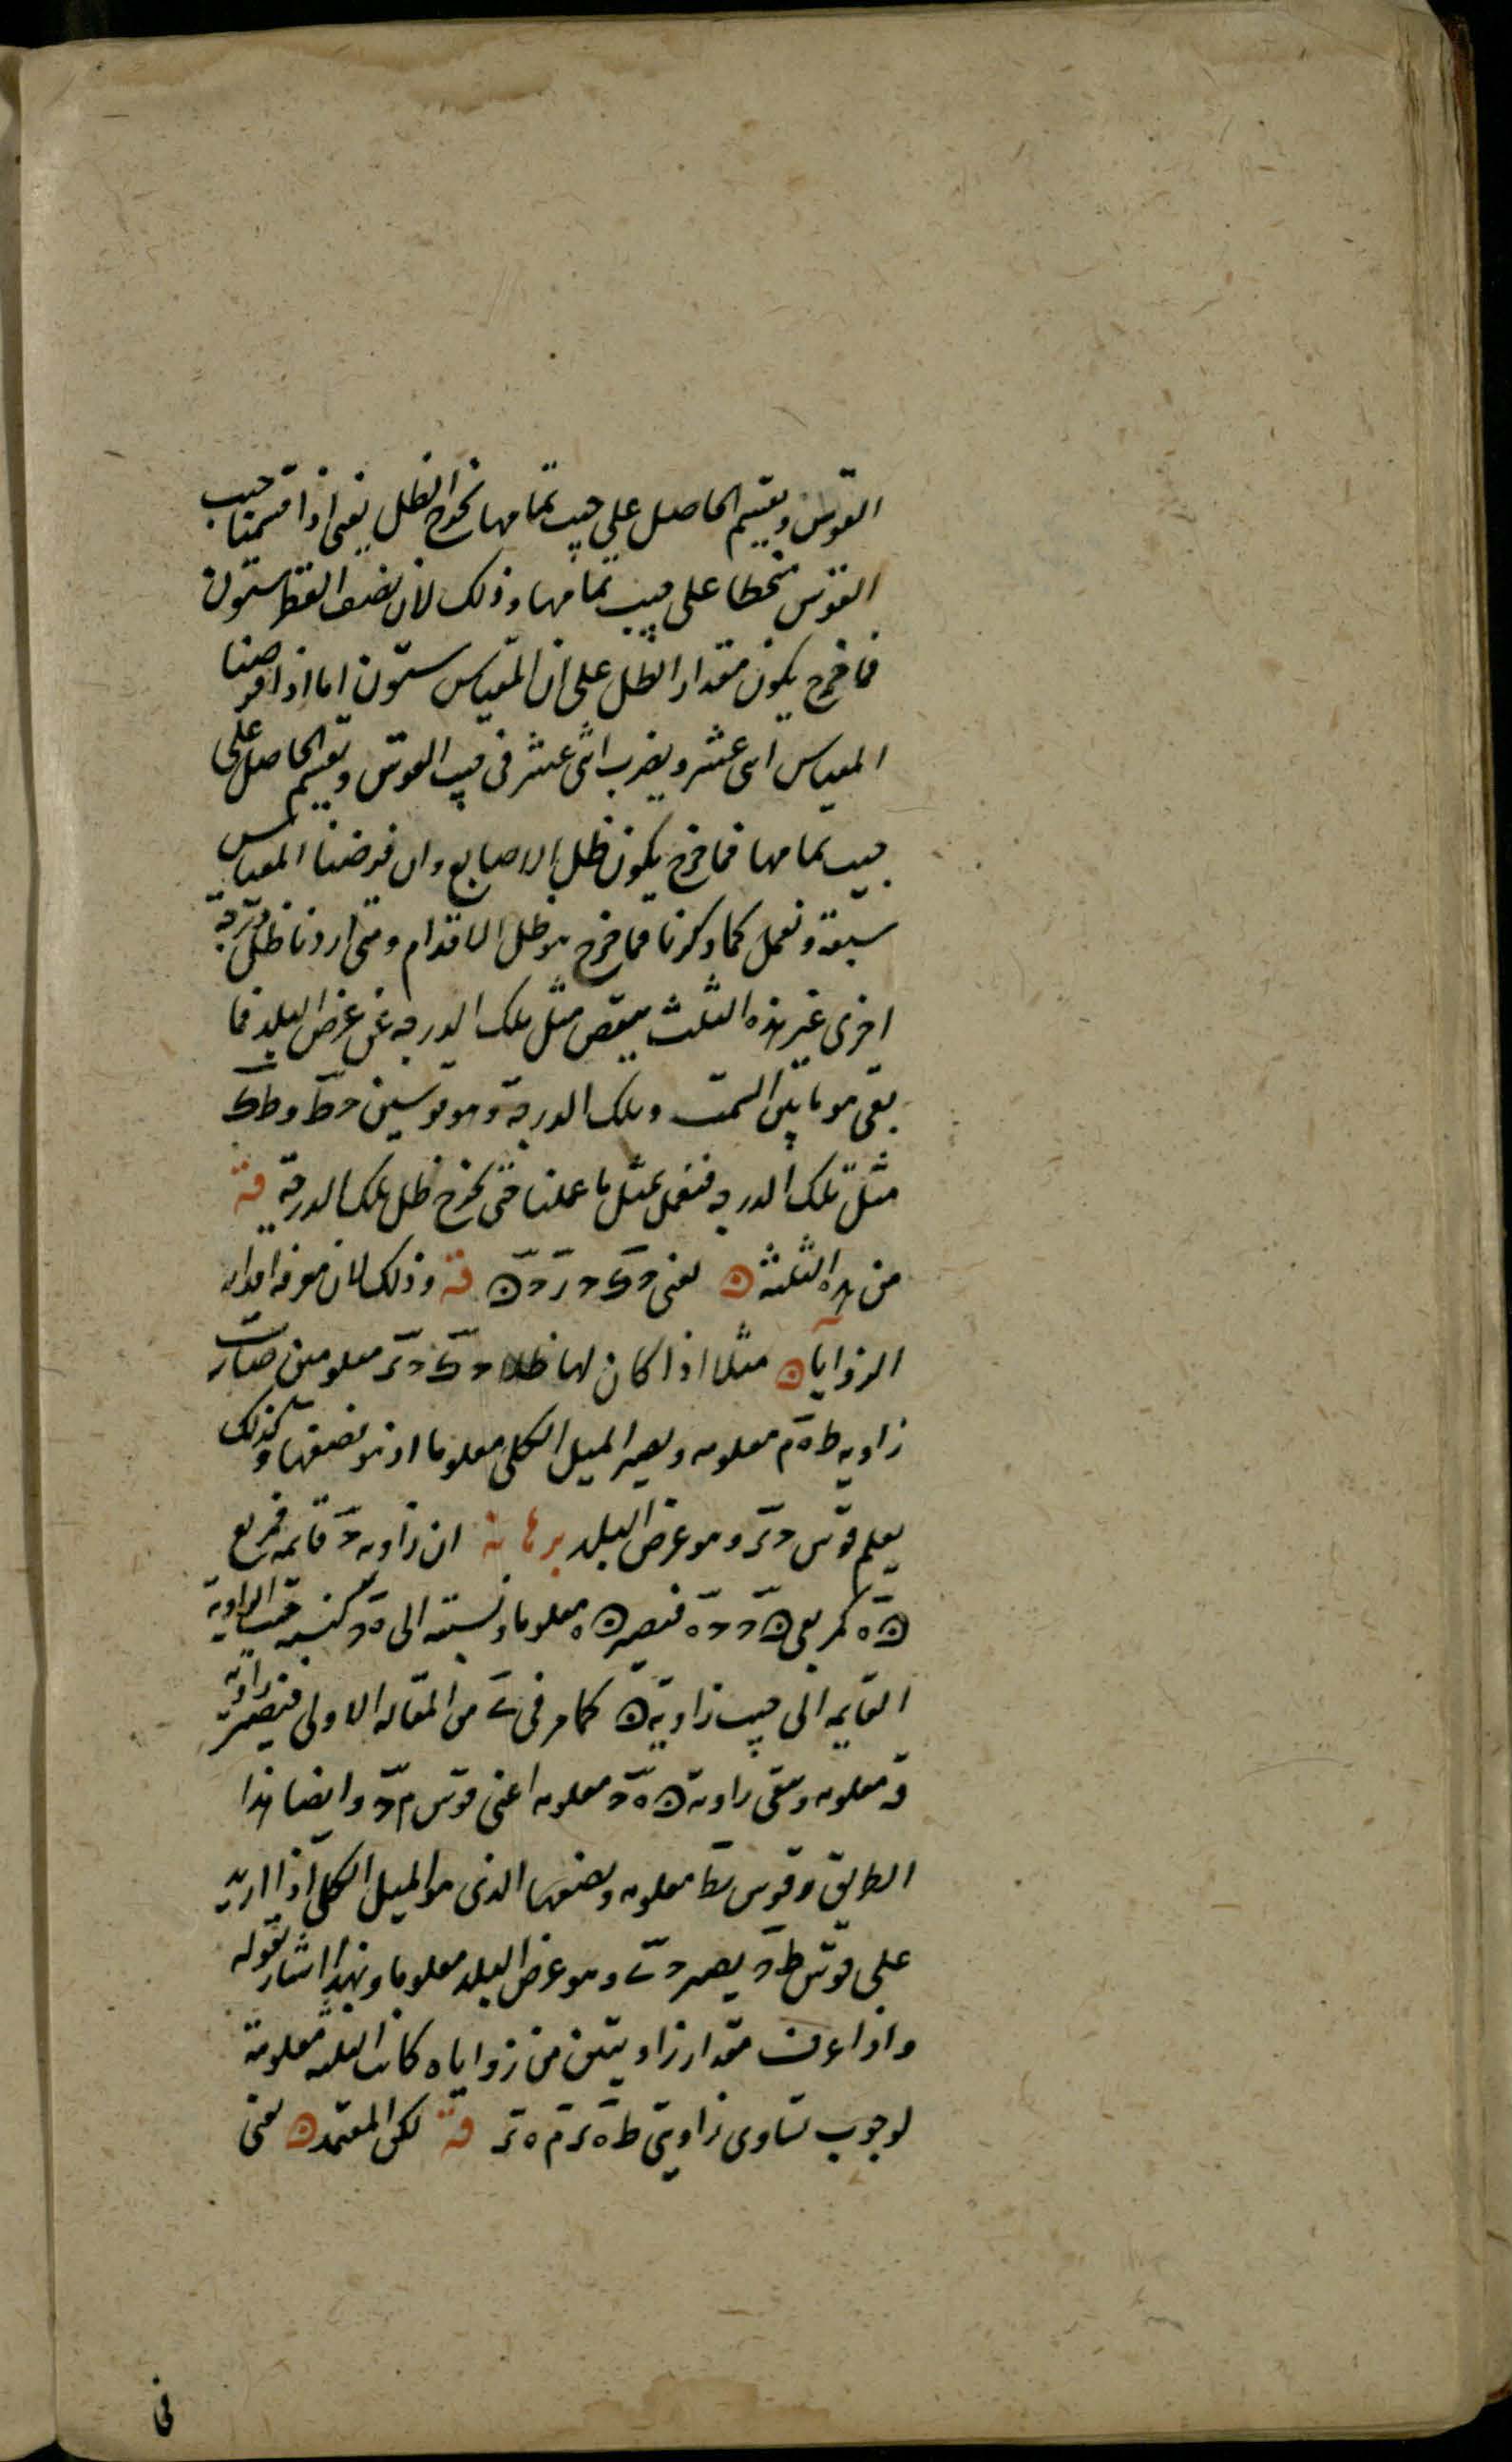 القوس ويقسم الحاصل على جيب تمامها يخرج الظل يعنى اذا قسمنا جيب
القوس منحطا على جيب تمامها وذلك لان نصف القطر ستون
فما خرج يكون مقدار الظل على ان المقياس ستون اما اذا فرضنا
المقياس اثنى عشر ويضرب اثنى عشر فى جيب القوس ويقسم الحاصل على
جيب تمامها فما خرج يكون ظل الاصابع وان فرضنا المقياس
سبعة ونعمل كما ذكرنا فما خرج هو ظل الاقدام ومتى اردنا ظل درجة
اخرى غير هذه الثلث ينقص مثل تلك الدرجه عن عرض البلد فما
بقى هو ما بين السمت وتلك الدرجة وهو قوسين
مثل تلك الدرجه فنعمل بمثل ما عملنا حتى يخرج ظل تلك الدرجة قه
من هذه الثلثه ن يعنى قه وذلك لان معرفه اقدار
الزوايا ن مثلا اذا كان لها ظلا معلومين صارت
زاويه ط ه م معلومه ويصير الميل الكلى معلوما اذ هو نصفها وكذلك
يعلم قوس وهو عرض البلد برهانه ان زاويه د قائمه فمربع
كمربعى فيصير معلوما ونسبته الى كنسبه جيب الزاويه
القايمه الى جيب زاوية كما مر فى من المقاله الاولى فيصير زاوية
معلومه وبقى زاوية معلومه اعنى قوس وايضا هذا
الطريق وقوس معلومه ونصفها الذى هو الميل الكلى اذا ازيد
على قوس يصير وهو عرض البلد معلوما وبهذا اشار بقوله
واذا عرف مقدار زاويتين من زوايا ه كانت الثلثه معلومة
لوجوب تساوى زاويتى قه لكن المعتمد ن يعنى
فى